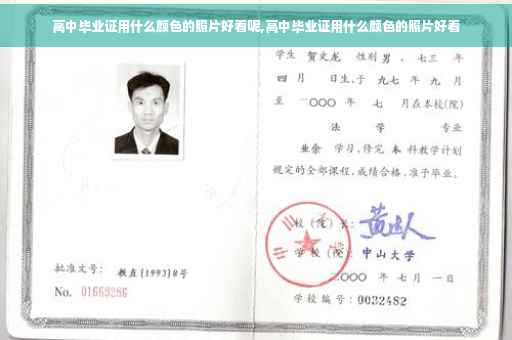 高中毕业证用什么颜色的照片好看呢,高中毕业证用什么颜色的照片好看
学生 贺文龙 性别 男 、七三 年
四 月 日生,于 九七 年 九 月
至 二〇〇〇 年 七 月在本校(院)
法 学 专业
业余 学习,修完 本 科教学计划
规定的全部课程,成绩合格,准予毕业。
校(院)长:
学 校(院): 中山大学
二〇〇〇 年 七 月 一 日
批准文号: 教直[1993]8号
No. 01669286
学校编号: 0032482